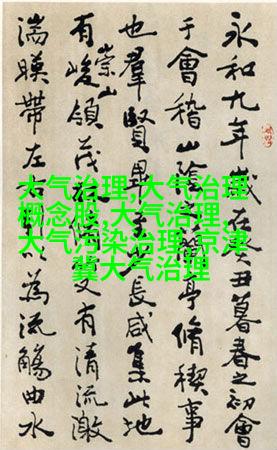 永和九年歲在癸丑暮春之初會
于會稽山陰蘭亭脩稧事
也羣賢畢至少長咸集此地
有崇山峻領茂林又有清流激
湍暎帶左以為流觴曲水
大气治理,大气治理
概念股,大气治理,
大气污染治理,京津
冀大气治理